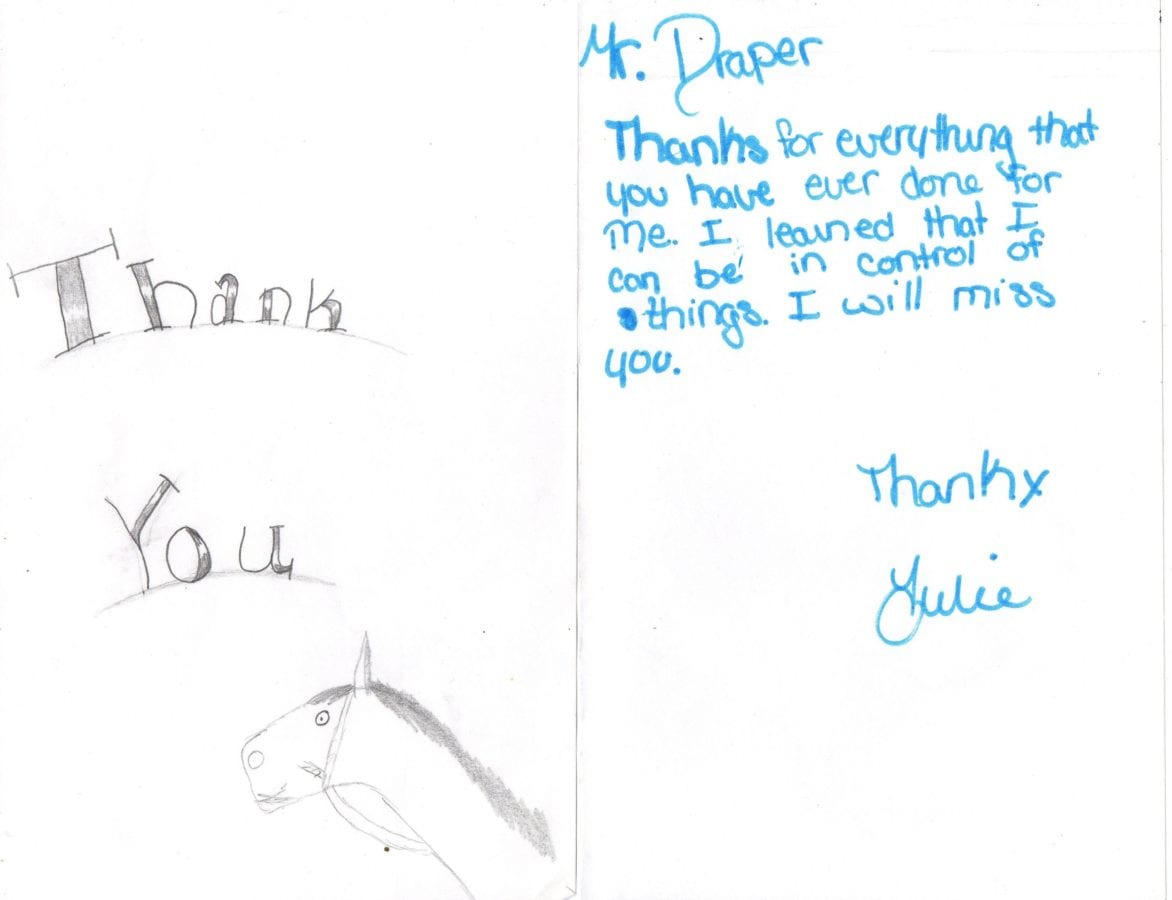 Thank
You
Mr. Draper
Thanks for everything that
you have ever done for
me. I learned that I
can be in control of
things. I will miss
you.
Thankx
Julie